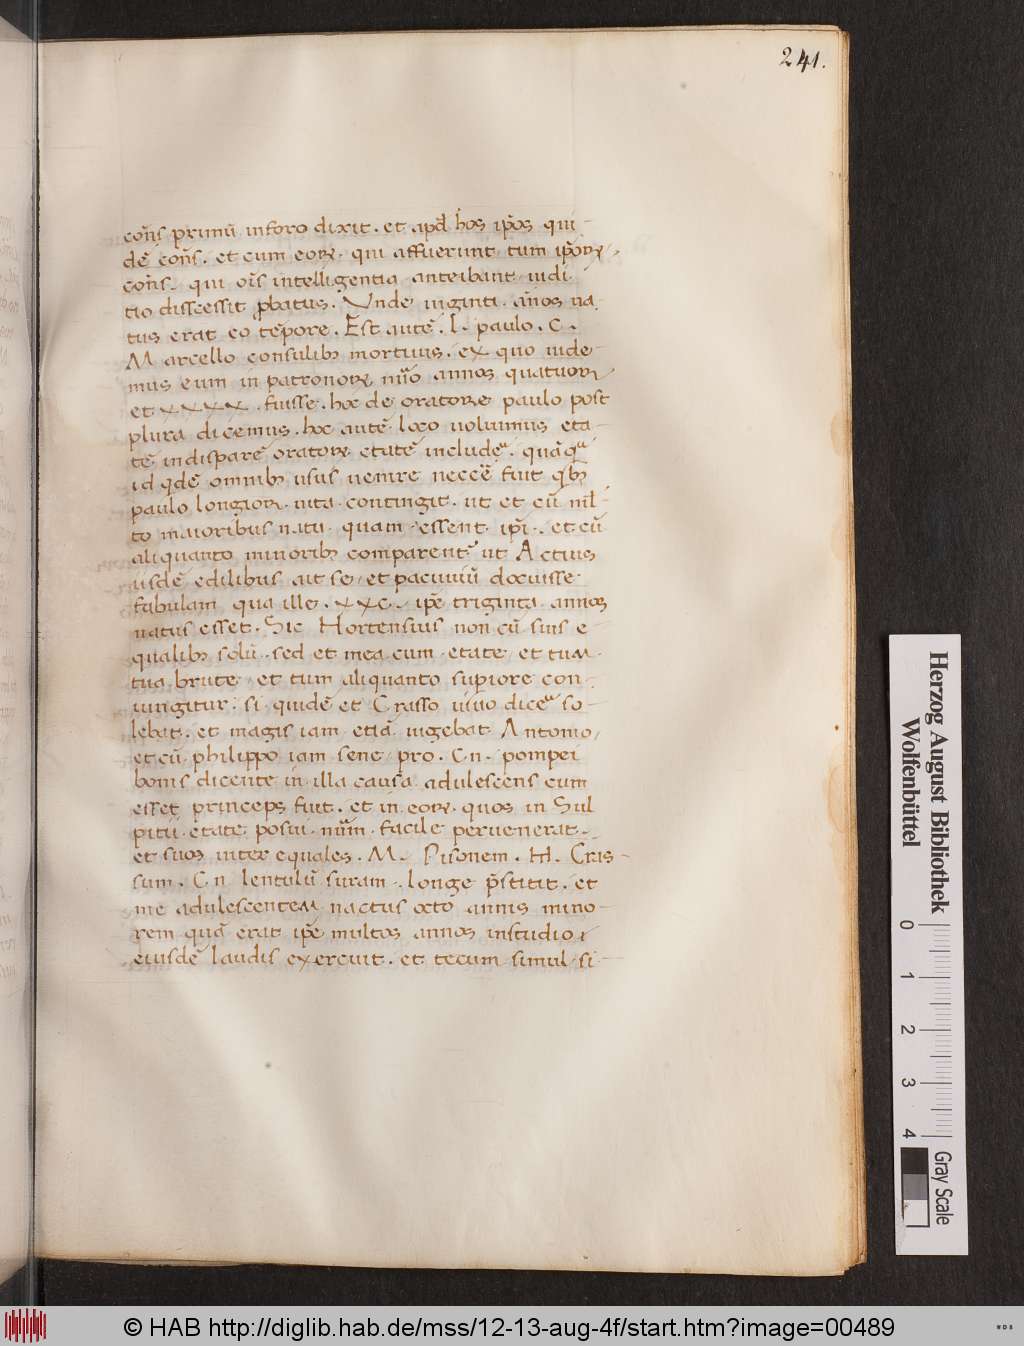 241.
cōn̄s primū inforo dixit. et apd̄ hos ip̄os qui
dē cōn̄s. et cum eorꝝ. qui affuerunt. tum ip̄orꝝ
cōn̄s. qui oīs intelligentia anteibant iudi
tio disscessit ꝓbatus. Vnde uiginti. ānos na
tus erat eo tēpore. Est autē. L. paulo. C.
Marcello consulibꝫ mortuus. ex quo uide
mus eum in patronorꝝ annos quatuor
et xxxx. fuisse. hoc de oratore paulo post
plura dicemus. hoc autē. loco uoluimus eta
tē indisparē oratorꝝ etatē
id qdē omnibꝫ usus uenire neccē fuit qbꝫ
paulo longior. uita contingit. ut et cū ml̄
to maioribus natu. quam essent ip̄i. et cū
aliquanto minoribꝫ comparent ut Actius
iisdē edilibus ait se. et pacuuiū docuisse
fabulam qua ille. xxc. ip̄e triginta annos
natus esset. Sic Hortensius non cū suis e
qualibꝫ solū. sed et mea cum etate et tum
tua brute et tum aliquanto superiore con
iungitur. si quidē et Crasso uiuo dice so
lebat. et magis iam etiā uigebat Antonio,
et cū philippo iam sene pro. Cn. pompei
bonis dicente in illa causa adulescens cum
esset princeps fuit. et in eorꝝ. quos in Sul
pitii etate posui facile peruenerat.
et suos inter equales. M. Pisonem. M. Cras
sum. Cn lentulū suram. longe p̄stitit. et
me adulescentem nactus octo annis mino
rem quā erat ip̄e multos annos instudio
eiusdē laudis exercuit. et tecum simul si
Herzog August Bibliothek
Wolfenbüttel
0 1 2 3 4
Gray Scale
© HAB http://diglib.hab.de/mss/12-13-aug-4f/start.htm?image=00489